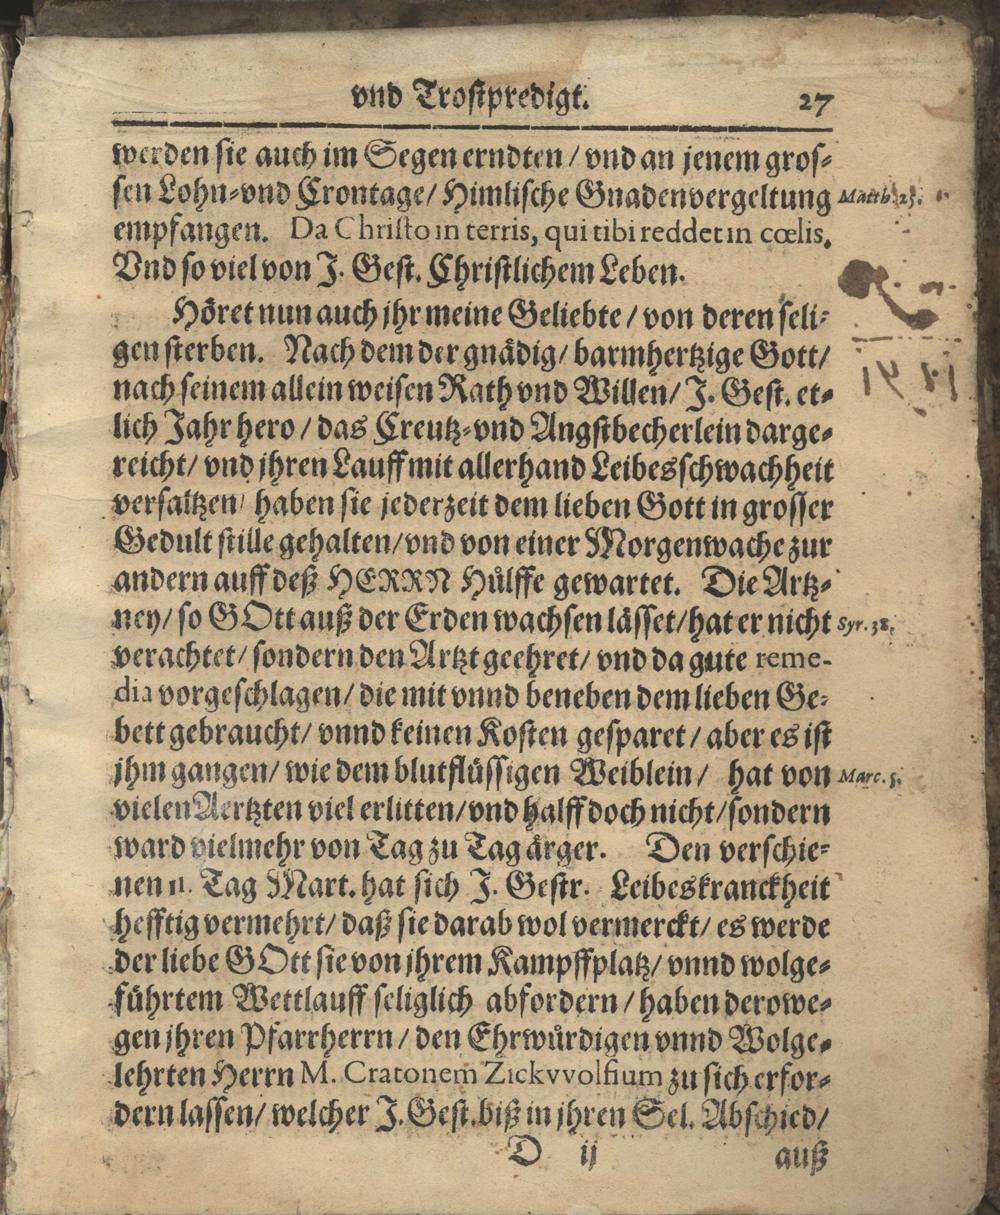 vnd Trostpredigt. 27
werden sie auch im Segen erndten / vnd an jenem gros⸗
sen Lohn⸗vnd Crontage / Himlische Gnadenvergeltung Matth. 25.
empfangen. Da Christo in terris, qui tibi reddet in cœlis.
Vnd so viel von J. Gest. Christlichem Leben.
Höret nun auch jhr meine Geliebte / von deren seli⸗
gen sterben. Nach dem der gnädig / barmhertzige Gott /
nach seinem allein weisen Rath vnd Willen / J. Gest. et⸗
lich Jahr hero / das Creutz⸗vnd Angstbecherlein darge⸗
reicht / vnd jhren Lauff mit allerhand Leibesschwachheit
versaltzen / haben sie jederzeit dem lieben Gott in grosser
Gedult stille gehalten / vnd von einer Morgenwache zur
andern auff deß HERRN Hülffe gewartet. Die Artz⸗
ney / so GOtt auß der Erden wachsen lässet / hat er nicht Syr. 38.
verachtet / sondern den Artzt geehret / vnd da gute reme-
dia vorgeschlagen / die mit vnnd beneben dem lieben Ge⸗
bett gebraucht / vnnd keinen Kosten gesparet / aber es ist
jhm gangen / wie dem blutflüssigen Weiblein / hat von Marc. 5.
vielen Aertzten viel erlitten / vnd halff doch nicht / sondern
ward vielmehr von Tag zu Tag ärger. Den verschie⸗
nen 11. Tag Mart. hat sich J. Gestr. Leibeskranckheit
hefftig vermehrt / daß sie darab wol vermerckt / es werde
der liebe GOtt sie von jhrem Kampffplatz / vnnd wolge⸗
führtem Wettlauff seliglich abfordern / haben derowe⸗
gen jhren Pfarrherrn / den Ehrwürdigen vnnd Wolge⸗
lehrten Herrn M. Cratonem Zickvvolfium zu sich erfor⸗
dern lassen / welcher J. Gest. biß in jhren Sel. Abschied /
D ij auß